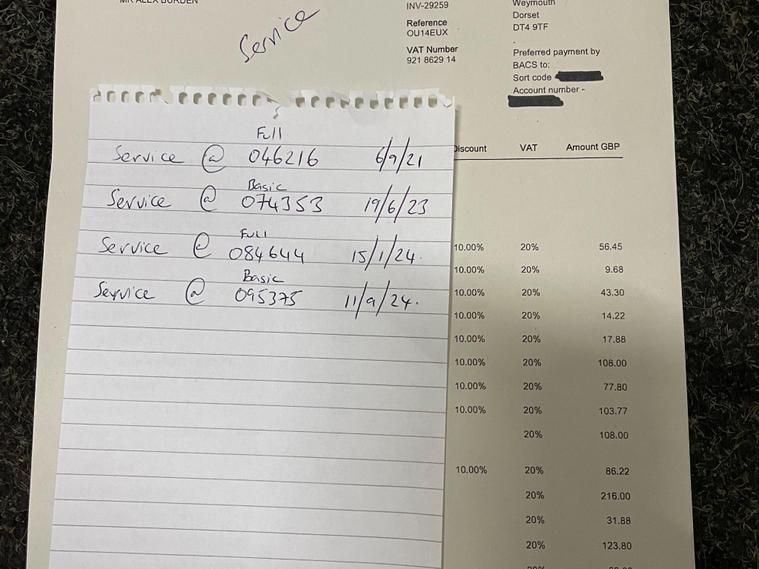 INV-29259
Reference
OU14EUX
VAT Number
921 8629 14
Weymouth
Dorset
DT4 9TF
.
Preferred payment by
BACS to:
Sort code
Account number -
Service
Full
Service @ 046216 6/9/21
Basic
Service @ 074353 19/6/23
Full
Service @ 084644 15/1/24.
Basic
Service @ 095375 11/9/24.
Discount VAT Amount GBP
10.00% 20% 56.45
10.00% 20% 9.68
10.00% 20% 43.30
10.00% 20% 14.22
10.00% 20% 17.88
10.00% 20% 108.00
10.00% 20% 77.80
10.00% 20% 103.77
20% 108.00
10.00% 20% 86.22
20% 216.00
20% 31.88
20% 123.80